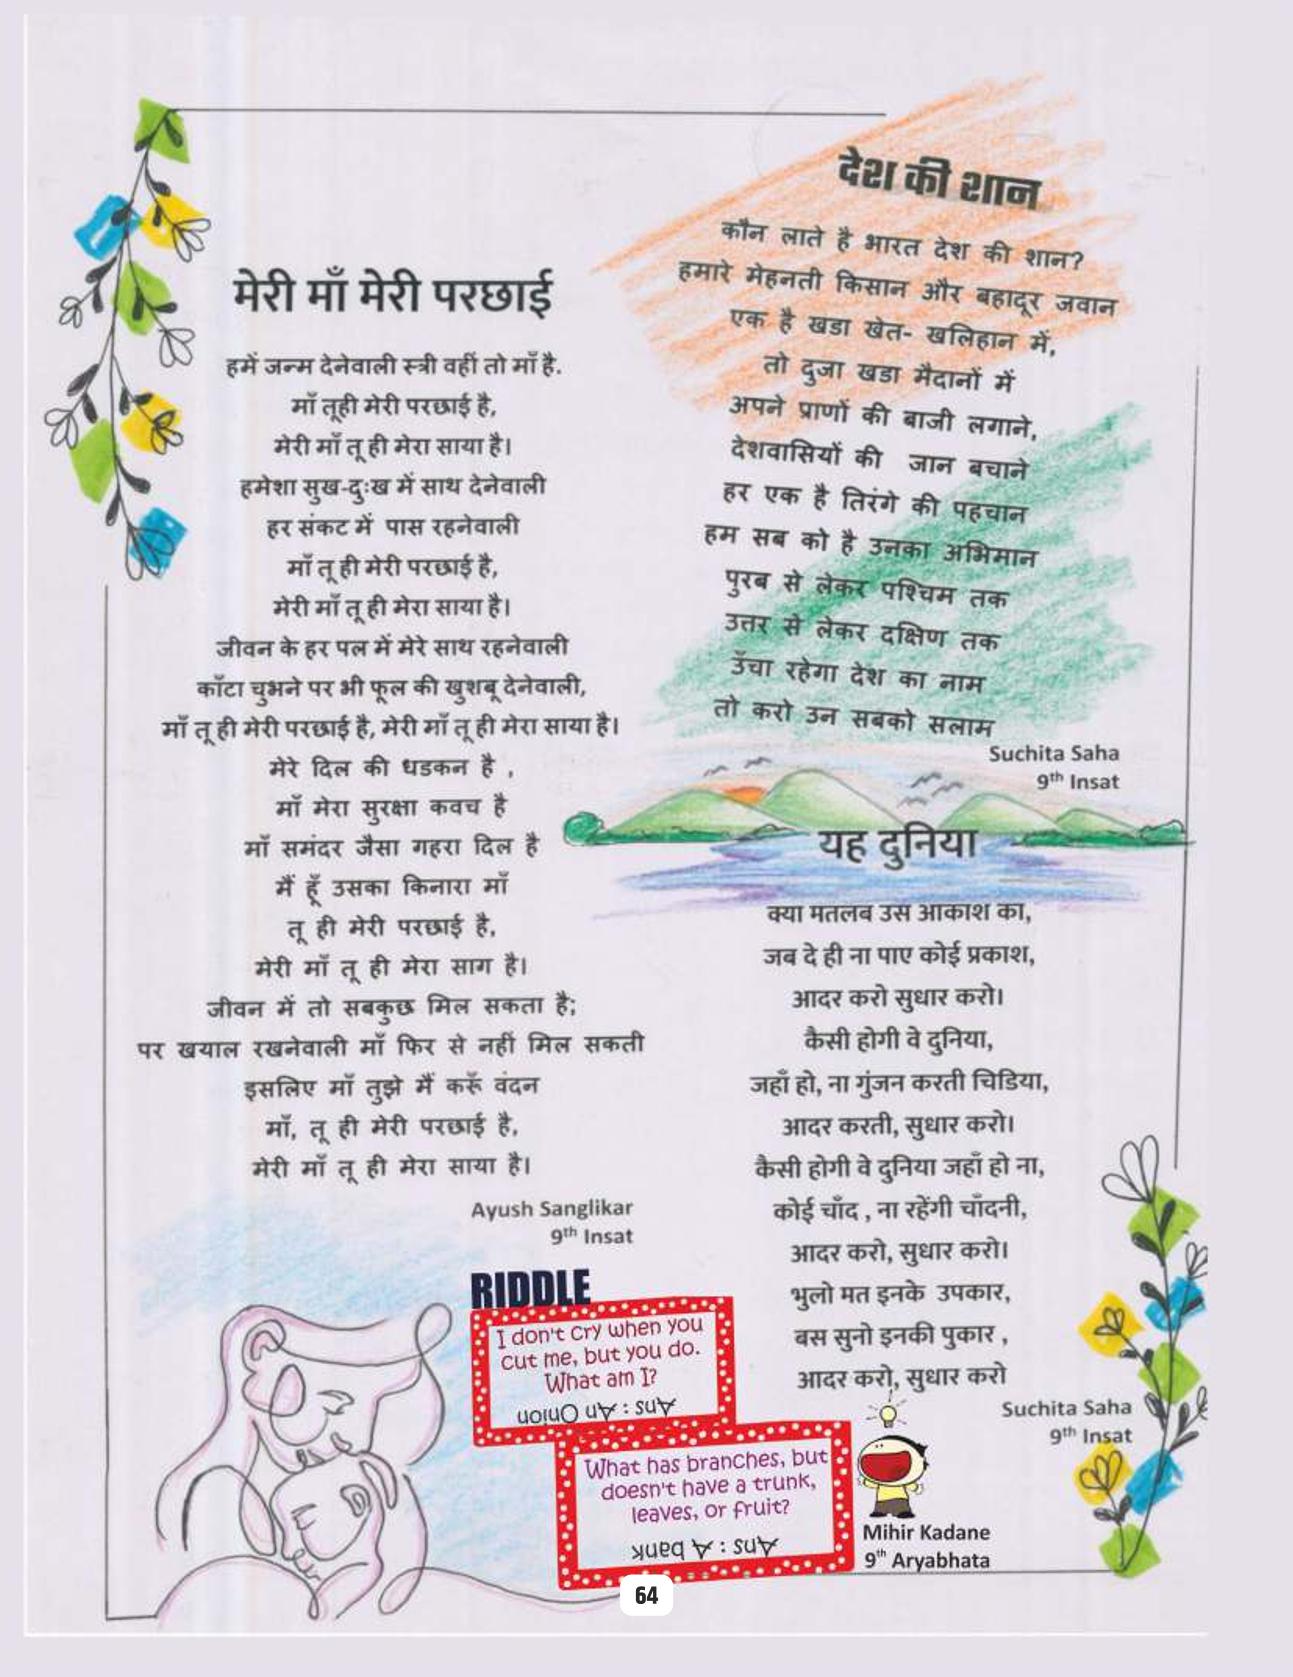 मेरी माँ मेरी परछाई
हमें जन्म देनेवाली स्त्री वहीं तो माँ है.
माँ तूही मेरी परछाई है,
मेरी माँ तू ही मेरा साया है।
हमेशा सुख-दुःख में साथ देनेवाली
हर संकट में पास रहनेवाली
माँ तू ही मेरी परछाई है,
मेरी माँ तू ही मेरा साया है।
जीवन के हर पल में मेरे साथ रहनेवाली
काँटा चुभने पर भी फूल की खुशबू देनेवाली,
माँ तू ही मेरी परछाई है, मेरी माँ तू ही मेरा साया है।
मेरे दिल की धडकन है ,
माँ मेरा सुरक्षा कवच है
माँ समंदर जैसा गहरा दिल है
मैं हूँ उसका किनारा माँ
तू ही मेरी परछाई है,
मेरी माँ तू ही मेरा साग है।
जीवन में तो सबकुछ मिल सकता है;
पर खयाल रखनेवाली माँ फिर से नहीं मिल सकती
इसलिए माँ तुझे मैं करूँ वंदन
माँ, तू ही मेरी परछाई है,
मेरी माँ तू ही मेरा साया है।
Ayush Sanglikar
9th Insat
देश की शान
कौन लाते है भारत देश की शान?
हमारे मेहनती किसान और बहादूर जवान
एक है खडा खेत- खलिहान में,
तो दुजा खडा मैदानों में
अपने प्राणों की बाजी लगाने,
देशवासियों की जान बचाने
हर एक है तिरंगे की पहचान
हम सब को है उनका अभिमान
पुरब से लेकर पश्चिम तक
उत्तर से लेकर दक्षिण तक
उँचा रहेगा देश का नाम
तो करो उन सबको सलाम
Suchita Saha
9th Insat
यह दुनिया
क्या मतलब उस आकाश का,
जब दे ही ना पाए कोई प्रकाश,
आदर करो सुधार करो।
कैसी होगी वे दुनिया,
जहाँ हो, ना गुंजन करती चिडिया,
आदर करती, सुधार करो।
कैसी होगी वे दुनिया जहाँ हो ना,
कोई चाँद , ना रहेंगी चाँदनी,
आदर करो, सुधार करो।
भुलो मत इनके उपकार,
बस सुनो इनकी पुकार ,
आदर करो, सुधार करो
Suchita Saha
9th Insat
RIDDLE
I don't cry when you
cut me, but you do.
What am I?
Ans : An Onion
What has branches, but
doesn't have a trunk,
leaves, or fruit?
Ans : A bank
Mihir Kadane
9th Aryabhata
64